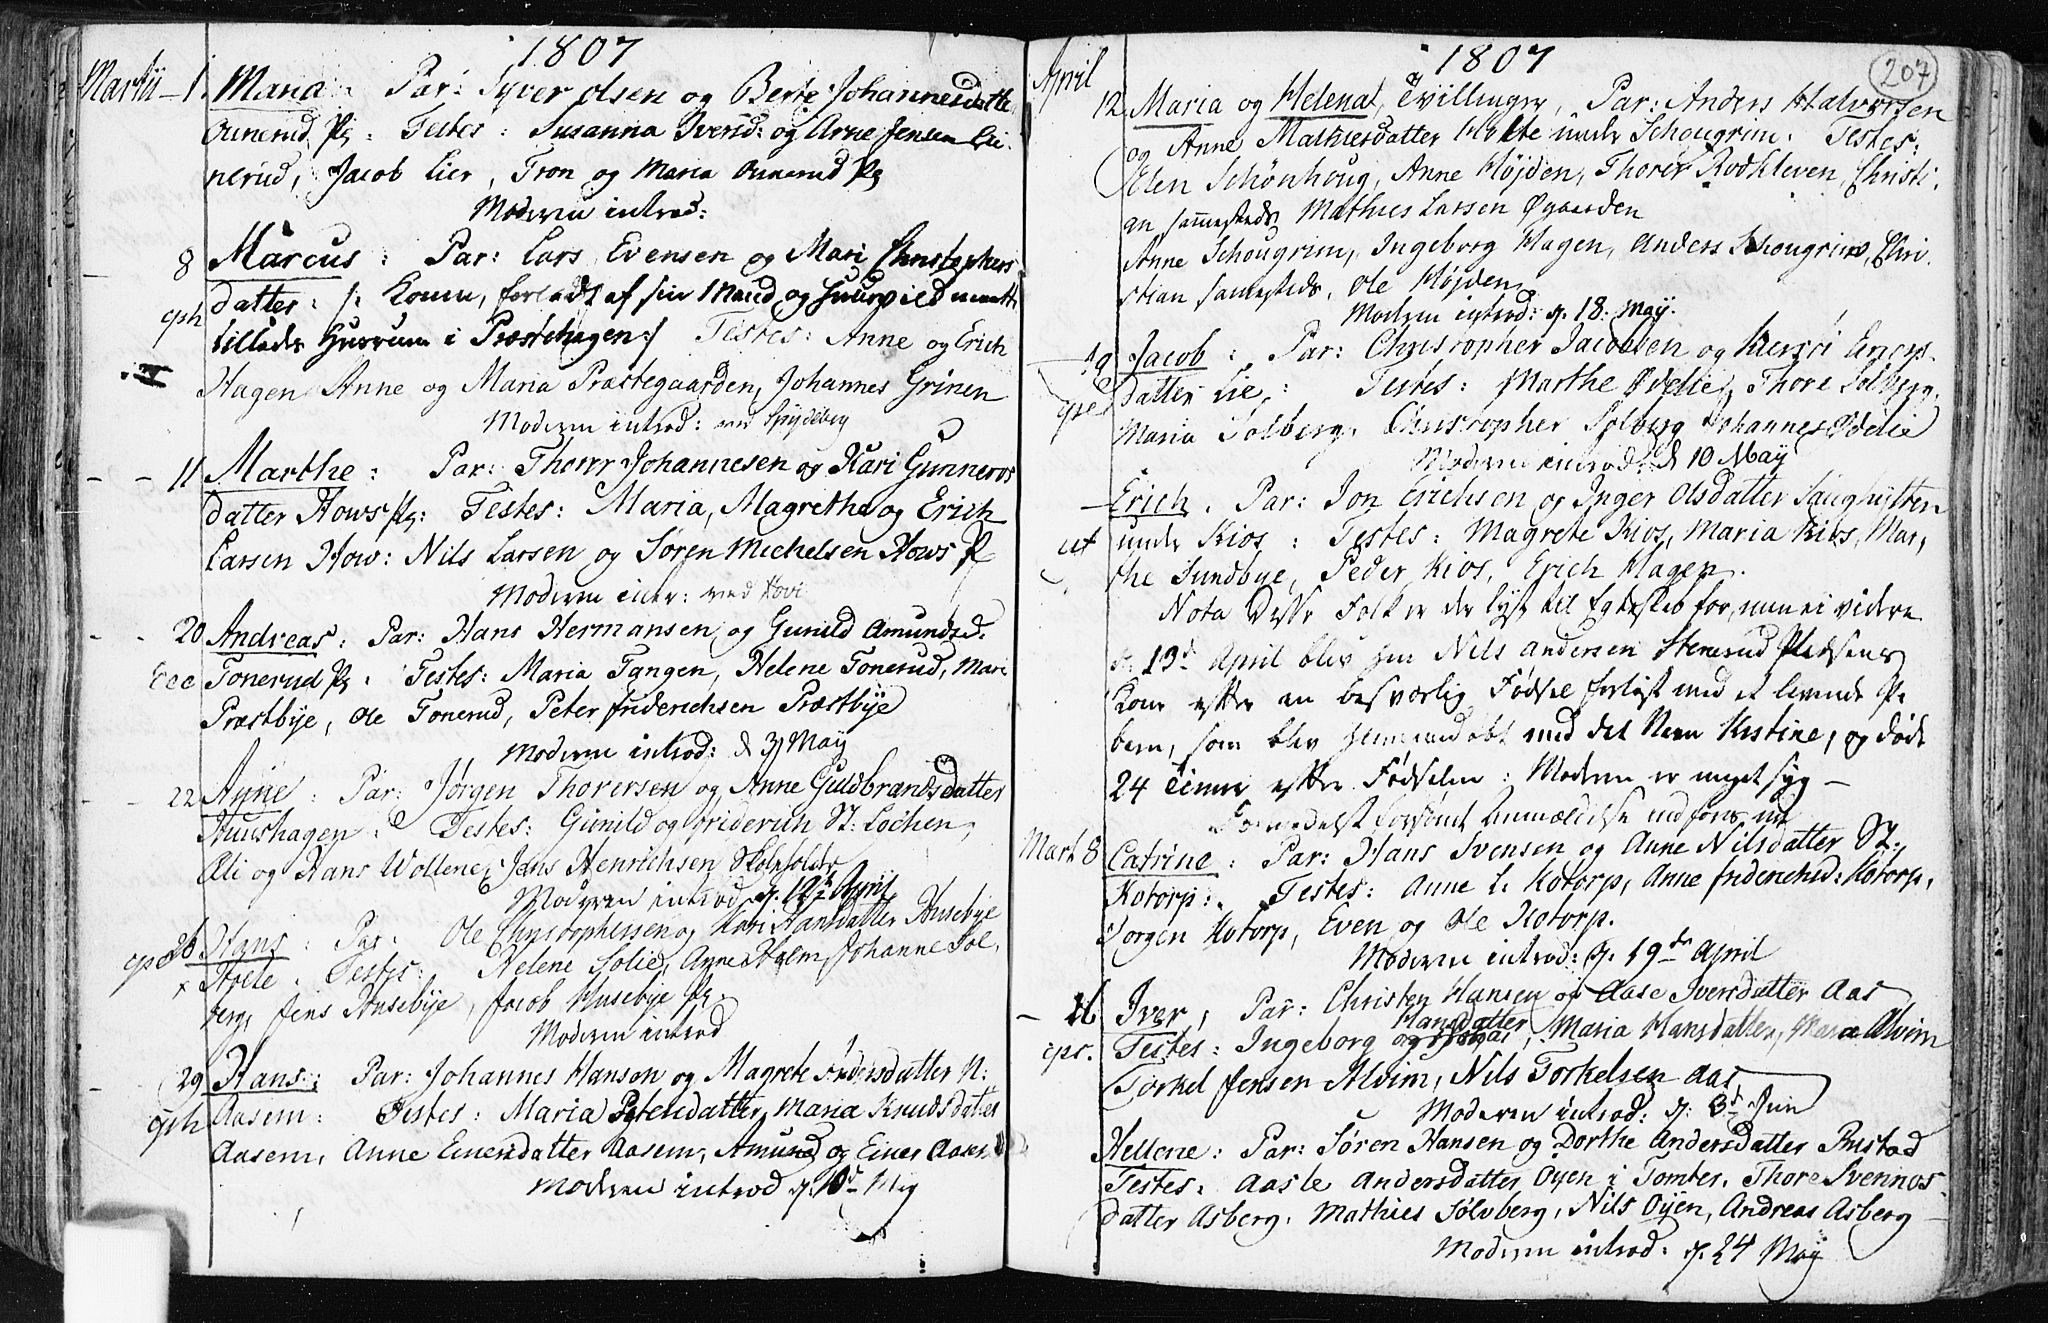 1807
Martii - 1. Maria Par: Syver Olsen og Berte Johannesdatte
Ounerud Pg: Testes: Susanna Iversd: og Arne Jensen
nerud, Jacob Lier, Tron og Maria Ounerud Pg
Moderen introd:
8 Marcus: Par: Lars Evensen og Mari Christophers
datter: /: Konen, forladt af sin Mand og
tillades Huusrum i Præstehagen :/ Testes: Anne og Erich
Hagen Anne og Maria Præstegaarden, Johannes Grinen
Moderen introd: ved Spydeberg
- - 11 Marthe: Par: Thorer Johannesen og Kari Gunneros
datter Hows Pg: Testes: Maria, Magrethe og Erich
Larsen How: Nils Larsen og Søren Michelsen Hows P
Moderen intr: ved Hovi
- - 20 Andreas: Par: Hans Hermansen og Gunild Amundsd.
Tonerud Pg: Testes: Maria Tangen, Helene Tonerud, Mari
Præstbye, Ole Tonerud, Peter Friderichsen Præstbye
Moderen introd: d 3 May
- - 22 Anne: Par: Jørgen Thorersen og Anne Guldbrandsdatter
Huushagen: Testes: Gunild og Friderich St: Løchen,
Ali og Hans Wollene, Jens Henrichsen Skoleholder
Moderen introd d. 19de April
26 Hans: Par: Ole Christophersen og Kari Hansdatter Husebye
Testes: Helene Solie, Anne Holm, Johanne Sol,
berg, Jens Husebye, Jacob Husebye Pg.
Moderen introd
- 29 Hans: Par: Johannes Hansen og Magrete Andersdatter N:
gph Aasem: Testes: Maria Petersdatter, Maria Knudsdatter
Aasem, Anne Einersdatter Aasem, Amund og Einer Aasem
Moderen introd d. 10de May
1807
207
April
12. Maria og Helena, Tvillinger, Par: Anders Halvorsen
og Anne Mathiesdatter Holte under Schougrim: Testes:
Elen Schönhoug, Anne Højden, Thorer Rodkleven, Christi
an sammesteds Mathies Larsen Øgaarden
Anne Schougrim, Ingeborg Hagen, Anders Schougrim, Chri
stian sammesteds, Ole Højden
Moderen introd: d. 18. May.
19 Jacob: Par: Christopher Jacobsen og Kersti Erichs
datter Lie,: Testes: Marthe Ødelie, Thore Solberg,
Maria Solberg, Christopher Solberg Johannes Ødelie
Moderen introd: d 10 May
- Erich. Par: Jon Erichsen og Inger Olsdatter Saughytten
under Kios: Testes: Magrete Kios, Maria Kios, Mar,
the Sundbye, Peder Kios, Erich Hagen.
Nota Desse Folk er der lyst til Egteskab for, men ei videre
d. 19de April blev Nils Andersen Stenerud Pladsens
Kone efter en besværlig Fødsel forløst med et levende Pi
barn, som blev hiemmedøbt med det Navn Kistine, og døde
24 Timer efter Fødselen: Moderen er meget syg -
Formedelst forsømt Anmældelse indføres nu
Mart 8 Catrine: Par: Hans Svensen og Anne Nilsdatter St:
Kotorp: Testes: Anne L: Kotorp, Anne Friderichsd: Kotorp,
Jørgen Kotorp, Even og Ole Kotorp.
Moderen introd: d. 19de April
- 26 Iver, Par: Christen Hansen og Aase Iversdatter Aas
Hansdatter
Testes: Ingeborg, Maria Hansdatter, Mara Alvim
Torkel Jensen Alvim, Nils Torkelsen Aas,
Moderen introd: d: 3d Jun
Hellene: Par: Søren Hansen og Dorthe Andersdatter Rustad
Testes: Aasle Andersdatter Oyen i Tomter, Thore Svennos
datter Asberg, Mathies Sølvberg, Nils Oyen, Andreas Asberg
Moderen introd: d. 24 May